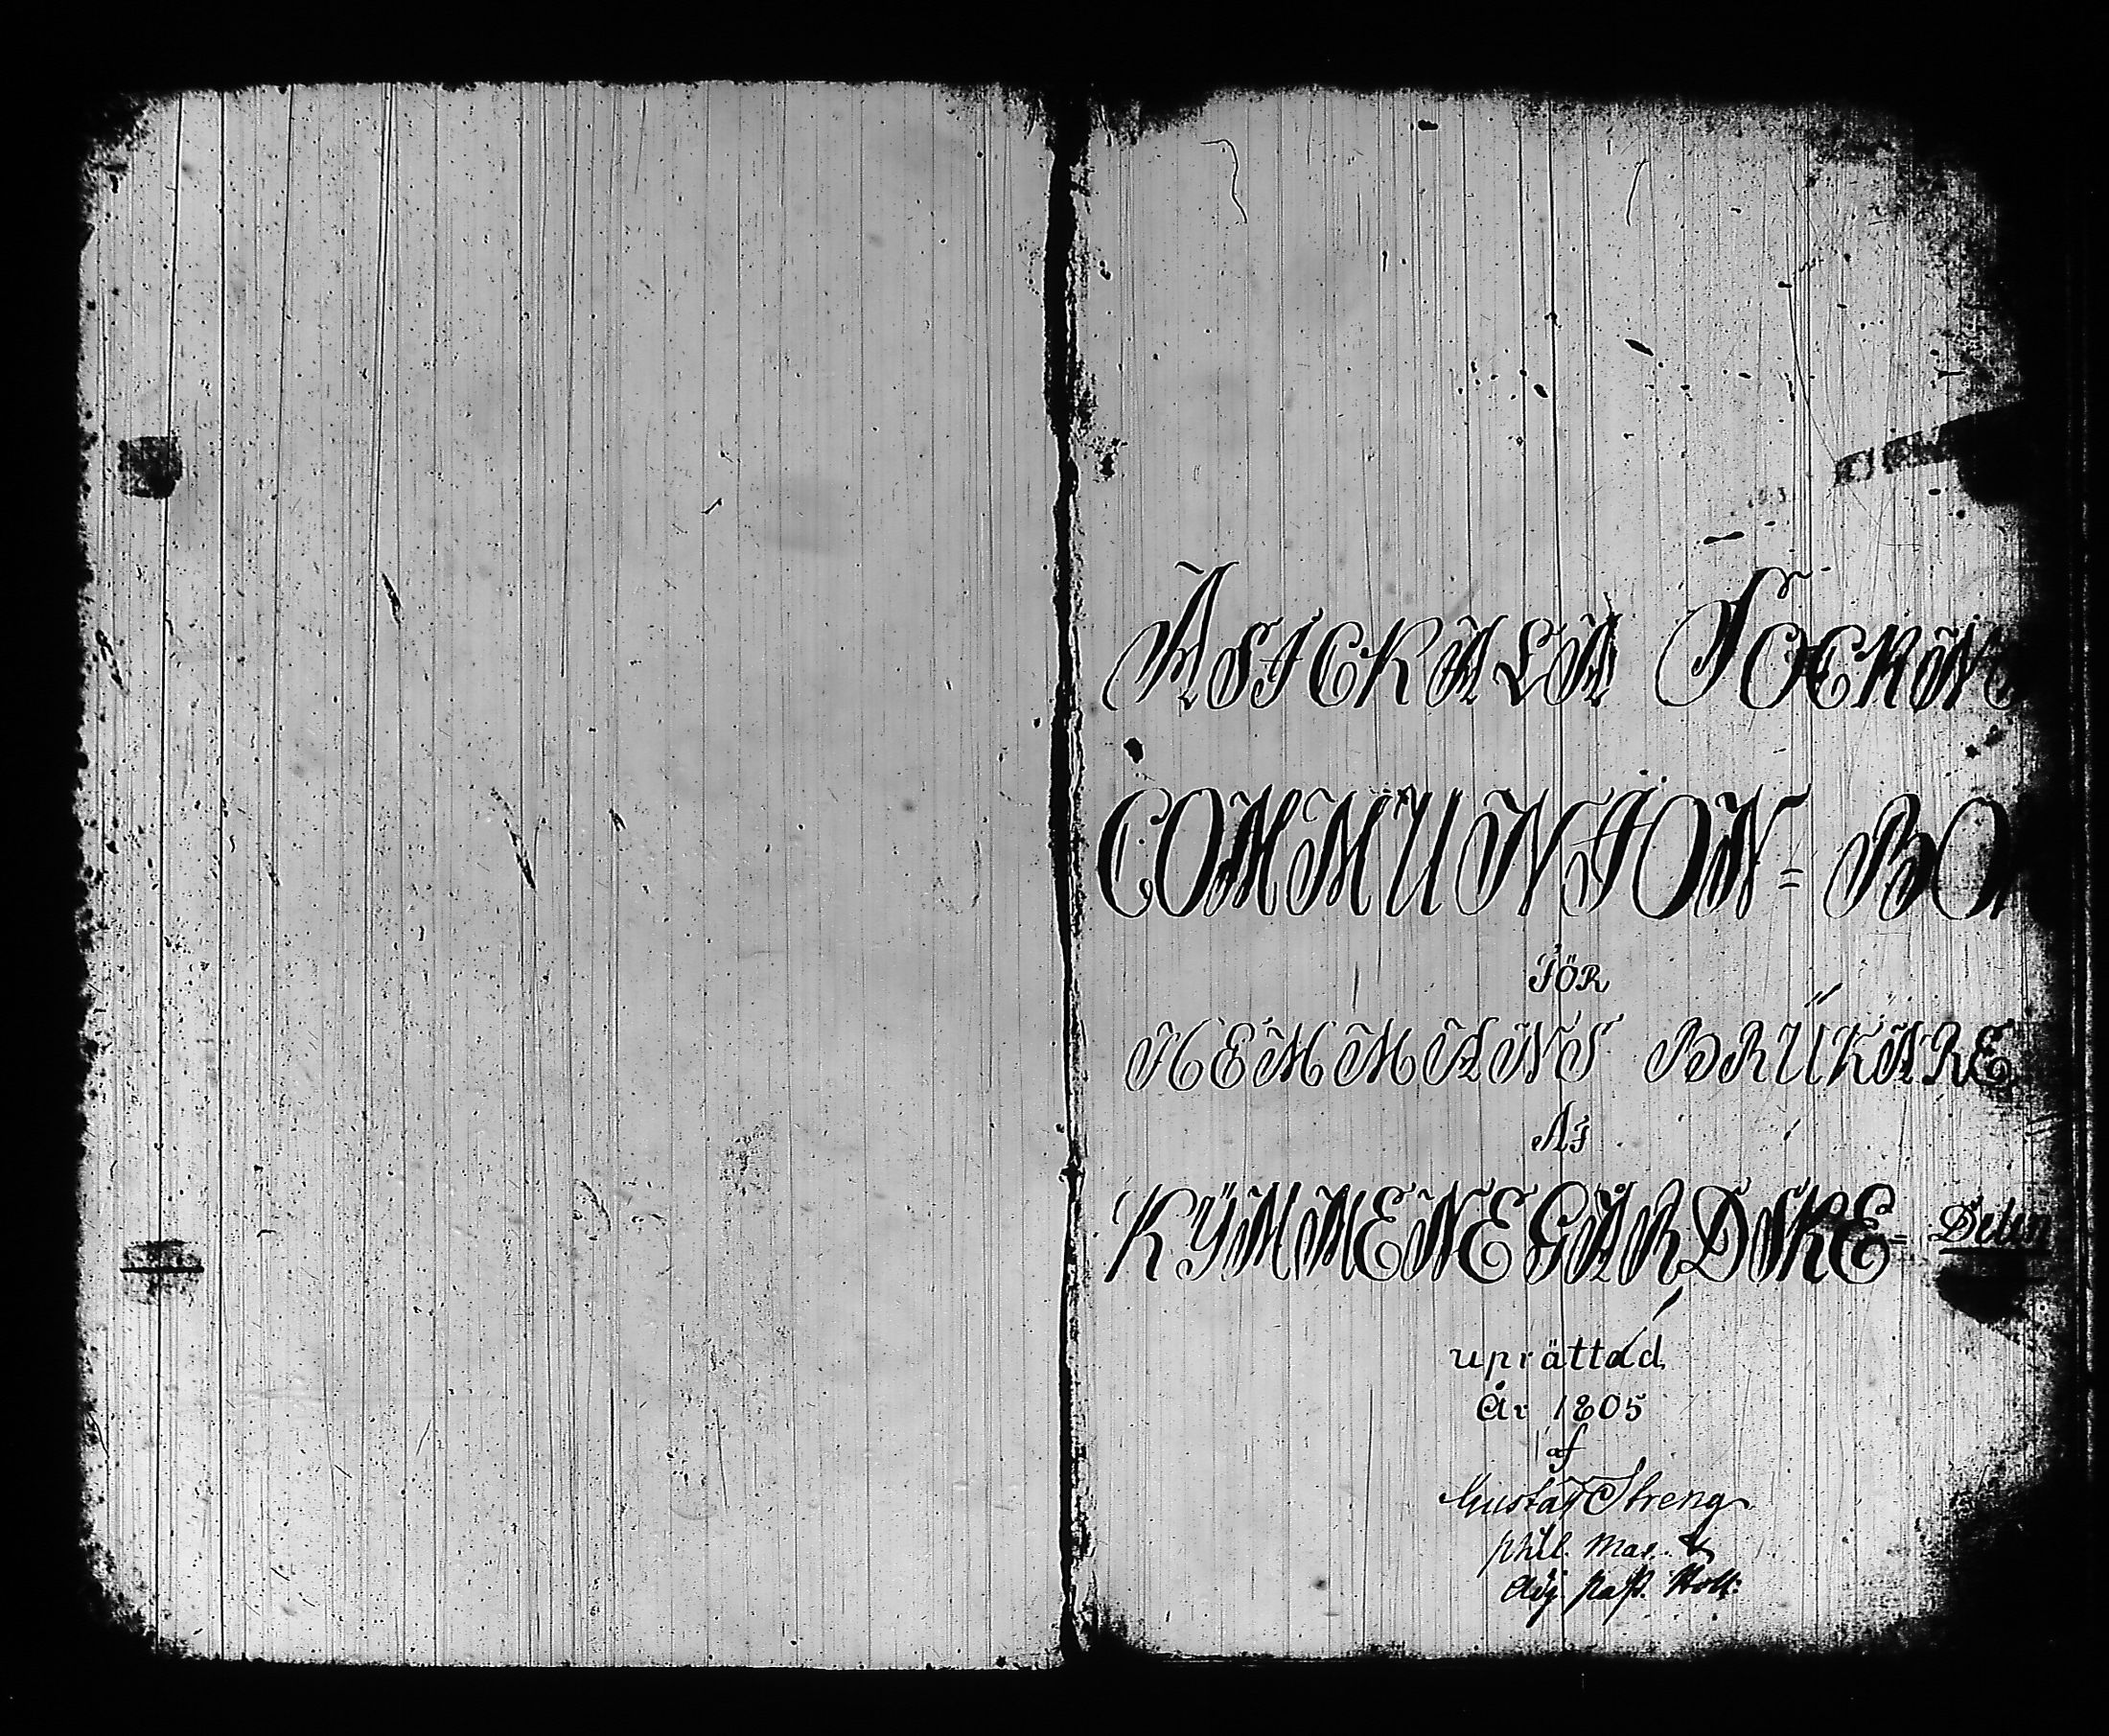 ASICKALA SOCKINS
COMMUNION = BOK
FÖR
HEMMANS BRUKARE
AF
KYMMENEGÅRDSKE = Delen
uprättad
år 1805
af
Gustaf Streng
phil. Mag. &
Adj. past.